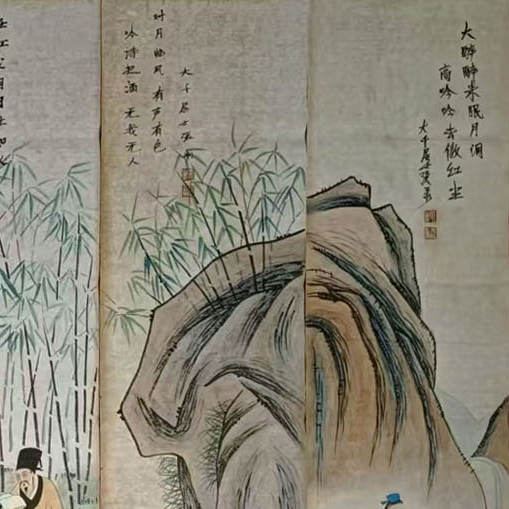 大醉醉来眠月洞
高吟吟去傲红尘
大千居士张爰
对月临风有声有色
吟诗把酒无我无人
大千居士张爰